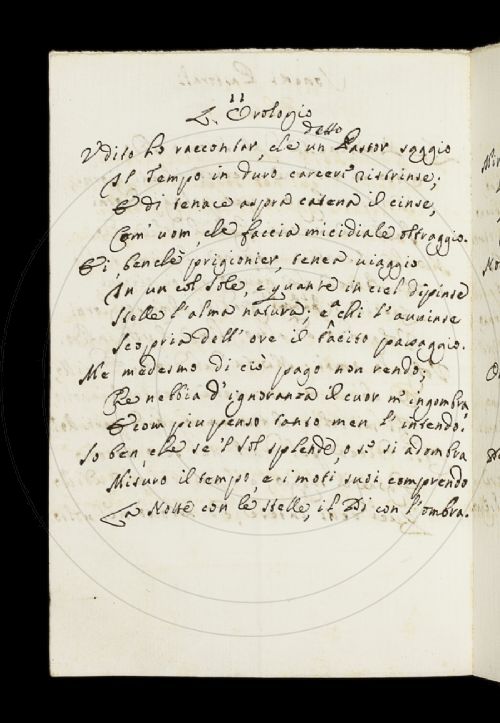 11
L'Orologio
Udito ho raccontar, che un dotto Pastor saggio
Il Tempo in duro carcere ristrinse;
E di tenace aspra catena il cinse,
Com' uom, che faccia micidiale oltraggio.
Ei, benchè prigionier, tenea viaggio
In un col Sole, e quante in ciel dipinse
Stelle l'alma natura; e a chi l'avvinse
Scopria dell'ore il tacito passaggio.
Me medesmo di ciò pago non rendo;
Che nebbia d'ignoranza il cuor m'ingombra,
E com più penso tanto men l'intendo.
So ben, che se 'l Sol splende, o se si adombra
Misuro il tempo, e i moti suoi comprendo
La Notte con le Stelle, il Dì con l'ombra.